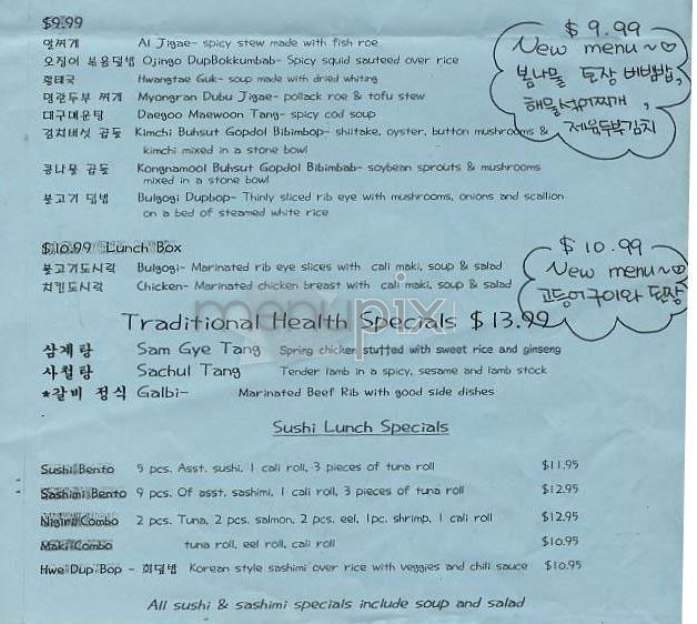 $9.99
알찌개 Al Jigae- spicy stew made with fish roe
오징어 볶음덮밥 Ojingo DupBokkumbab- Spicy squid sauteed over rice
황태국 Hwangtae Guk- soup made with dried whiting
명란두부 찌개 Myongran Dubu Jigae- pollack roe & tofu stew
대구매운탕 Daegoo Maewoon Tang- spicy cod soup
김치버섯 곱돌 Kimchi Buhsut Gopdol Bibimbop- shiitake, oyster, button mushrooms &
kimchi mixed in a stone bowl
콩나물 곱돌 Kongnamool Buhsut Gopdol Bibimbab- soybean sprouts & mushrooms
mixed in a stone bowl
불고기 덮밥 Bulgogi Dupbop- Thinly sliced rib eye with mushrooms, onions and scallion
on a bed of steamed white rice
$9.99
New menu~♡
봄나물 된장 비빔밥,
해물섞어찌개,
제육두부김치
$10.99 Lunch Box
불고기도시락 Bulgogi- Marinated rib eye slices with cali maki, soup & salad
치킨도시락 Chicken- Marinated chicken breast with cali maki, soup & salad
$10.99
New menu~♡
고등어구이와 된장
menupix
Traditional Health Specials $13.99
삼계탕 Sam Gye Tang Spring chicken stuffed with sweet rice and ginseng
사철탕 Sachul Tang Tender lamb in a spicy, sesame and lamb stock
*갈비 정식 Galbi- Marinated Beef Rib with good side dishes
Sushi Lunch Specials
Sushi Bento 5 pcs. Asst. sushi, 1 cali roll, 3 pieces of tuna roll $11.95
Sashimi Bento 9 pcs. Of asst. sashimi, 1 cali roll, 3 pieces of tuna roll $12.95
Nigiri Combo 2 pcs. Tuna, 2 pcs. salmon, 2 pcs. eel, 1pc. shrimp, 1 cali roll $12.95
Maki Combo tuna roll, eel roll, cali roll $10.95
Hwe Dup Bop - 회덮밥 Korean style sashimi over rice with veggies and chili sauce $10.95
All sushi & sashimi specials include soup and salad